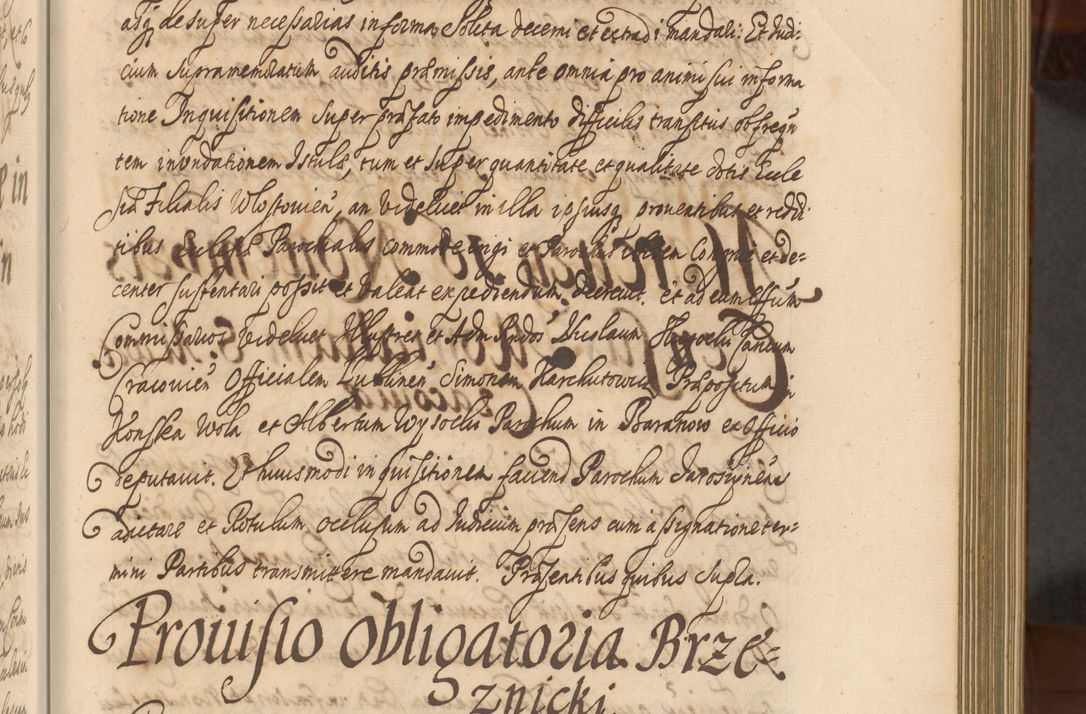 asq́ desuper necessarias in forma solita decerni et extradi mandari: Et Judi-
cium supramemoratum auditis præmissis, ante omnia pro animi sui informa
tione Inquisitionem super præfato impedimento difficilis transitus ob freqũ
tem inundationem Istulæ, tum et super quantitate et qualitate dotis Eccle
siæ Filialis Wlostovieñ, an videlicet in illa ipsiusq́ proventibus et reddi-
tibus Ecclesia Parochialis commode erigi et Parochus ibidem congrue et de-
center sustentari possit et valeat expediendum decrevit. et ad eum effectum
Commissarios videlicet Illustres et Adm Rndos Nicolaum Cancum
Cracovieñ Officialem Lublineñ, Simonem Harchutowicz Præpositum in
Konska Wola et Albertum Wysocki Parochum in Baranow ex officio
deputavit. Et huiusmodi inquisitionem faciend Parochum
adcitare et Rotulum occlusum ad Judicium præsens cum assignatione ter-
mini Partibus transmittere mandavit. Præsentibus quibus supra.
Provisio obligatoria Brze-
znicki.